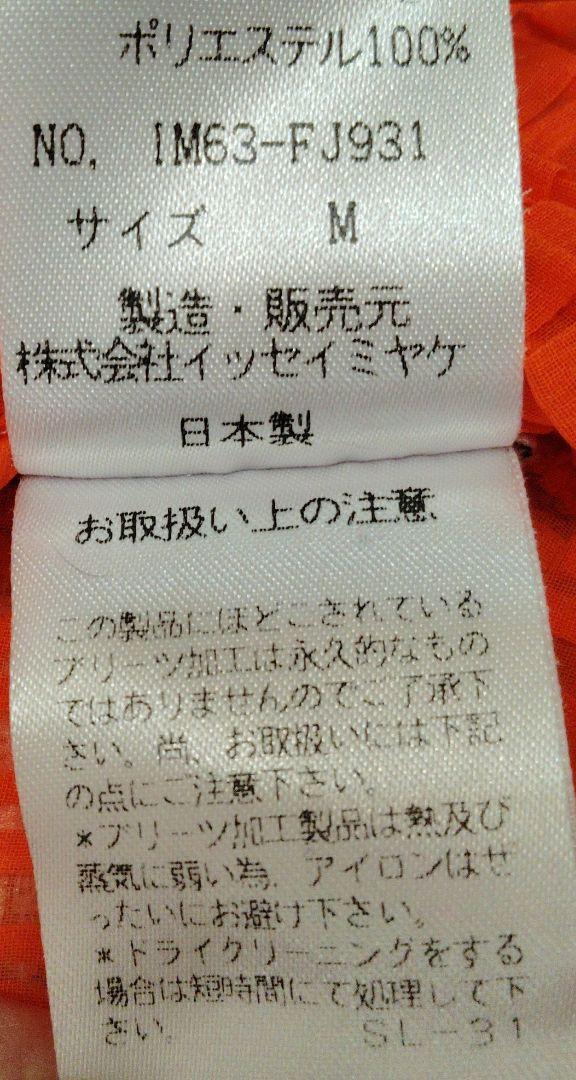 ポリエステル100%
NO. IM63-FJ931
サイズ M
製造・販売元
株式会社イッセイミヤケ
日本製
お取扱い上の注意
この製品にほどこされている
プリーツ加工は永久的なもの
ではありませんのでご了承下
さい。尚、お取扱いには下記
の点にご注意下さい。
*プリーツ加工製品は熱及び
蒸気に弱い為、アイロンはぜ
ったいにお避け下さい。
*ドライクリーニングをする
場合は短時間にて処理して下
さい。 SL-31